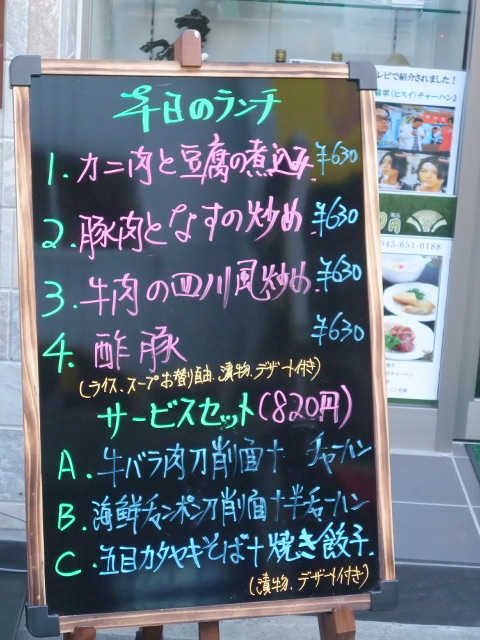 平日のランチ
1. カニ肉と豆腐の煮込み ¥630
2. 豚肉となすの炒め ¥630
3. 牛肉の四川風炒め ¥630
4. 酢豚 ¥630
(ライス、スープお替り自由、漬物、デザート付き)
サービスセット(820円)
A. 牛バラ肉刀削面+チャーハン
B. 海鮮チャンポン刀削面+半チャーハン
C. 五目カタヤキそば+焼き餃子
(漬物、デザート付き)
テレビで紹介されました!
翡翠(ヒスイ)チャーハン』
0円
045-651-0188